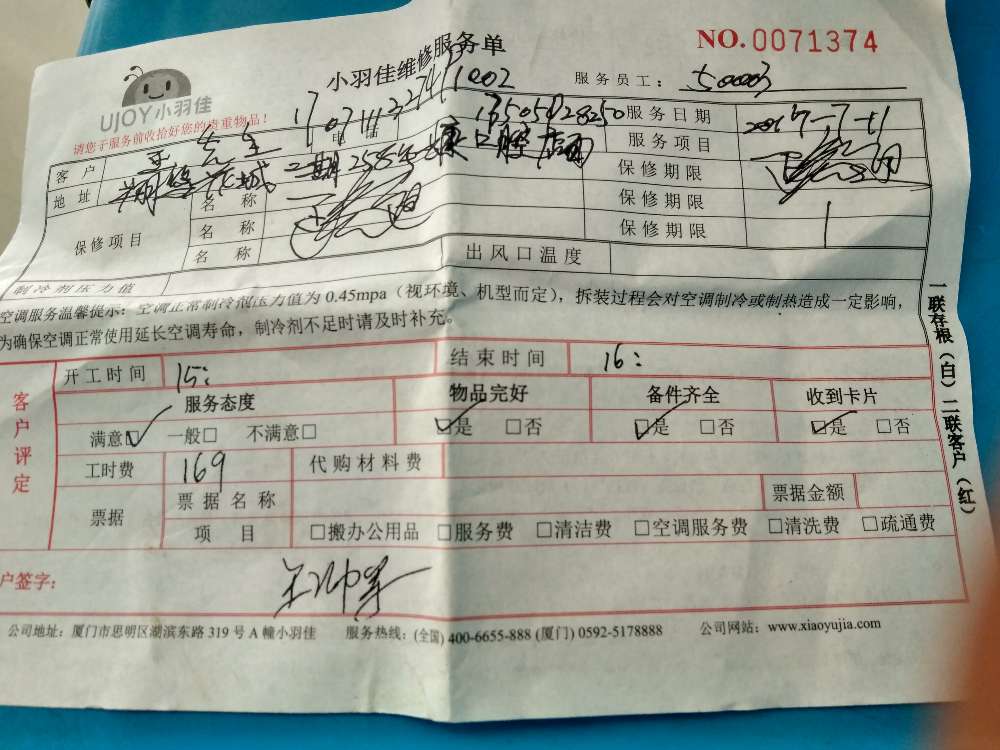 小羽佳维修服务单
NO.0071374
UJOY小羽佳
服务员工：50003
请您于服务前收拾好您的贵重物品！
客户 先生 电话 13505028250 服务日期
地址 二期 口腔 服务项目
保修项目 名称 保修期限
名称 保修期限
名称 保修期限
制冷剂压力值 出风口温度
空调服务温馨提示：空调正常制冷剂压力值为 0.45mpa（视环境、机型而定），拆装过程会对空调制冷或制热造成一定影响，
为确保空调正常使用延长空调寿命，制冷剂不足时请及时补充。
客户评定
开工时间 15： 结束时间 16：
服务态度 物品完好 备件齐全 收到卡片
满意☑ 一般□ 不满意□ ☑是 □否 ☑是 □否 ☑是 □否
工时费 169 代购材料费
票据 票据名称 票据金额
项目 □搬办公用品 □服务费 □清洁费 □空调服务费 □清洗费 □疏通费
户签字：
公司地址：厦门市思明区湖滨东路 319 号 A 幢小羽佳 服务热线：(全国) 400-6655-888 (厦门) 0592-5178888 公司网站：www.xiaoyujia.com
一联存根（白）二联客户（红）